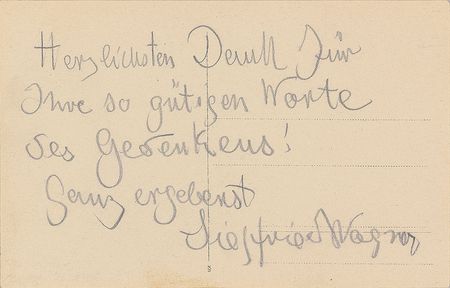 Herzlichsten Dank für
Ihre so gütigen Worte
des Gedenkens!
Ganz ergebenst
Siegfried Wagner